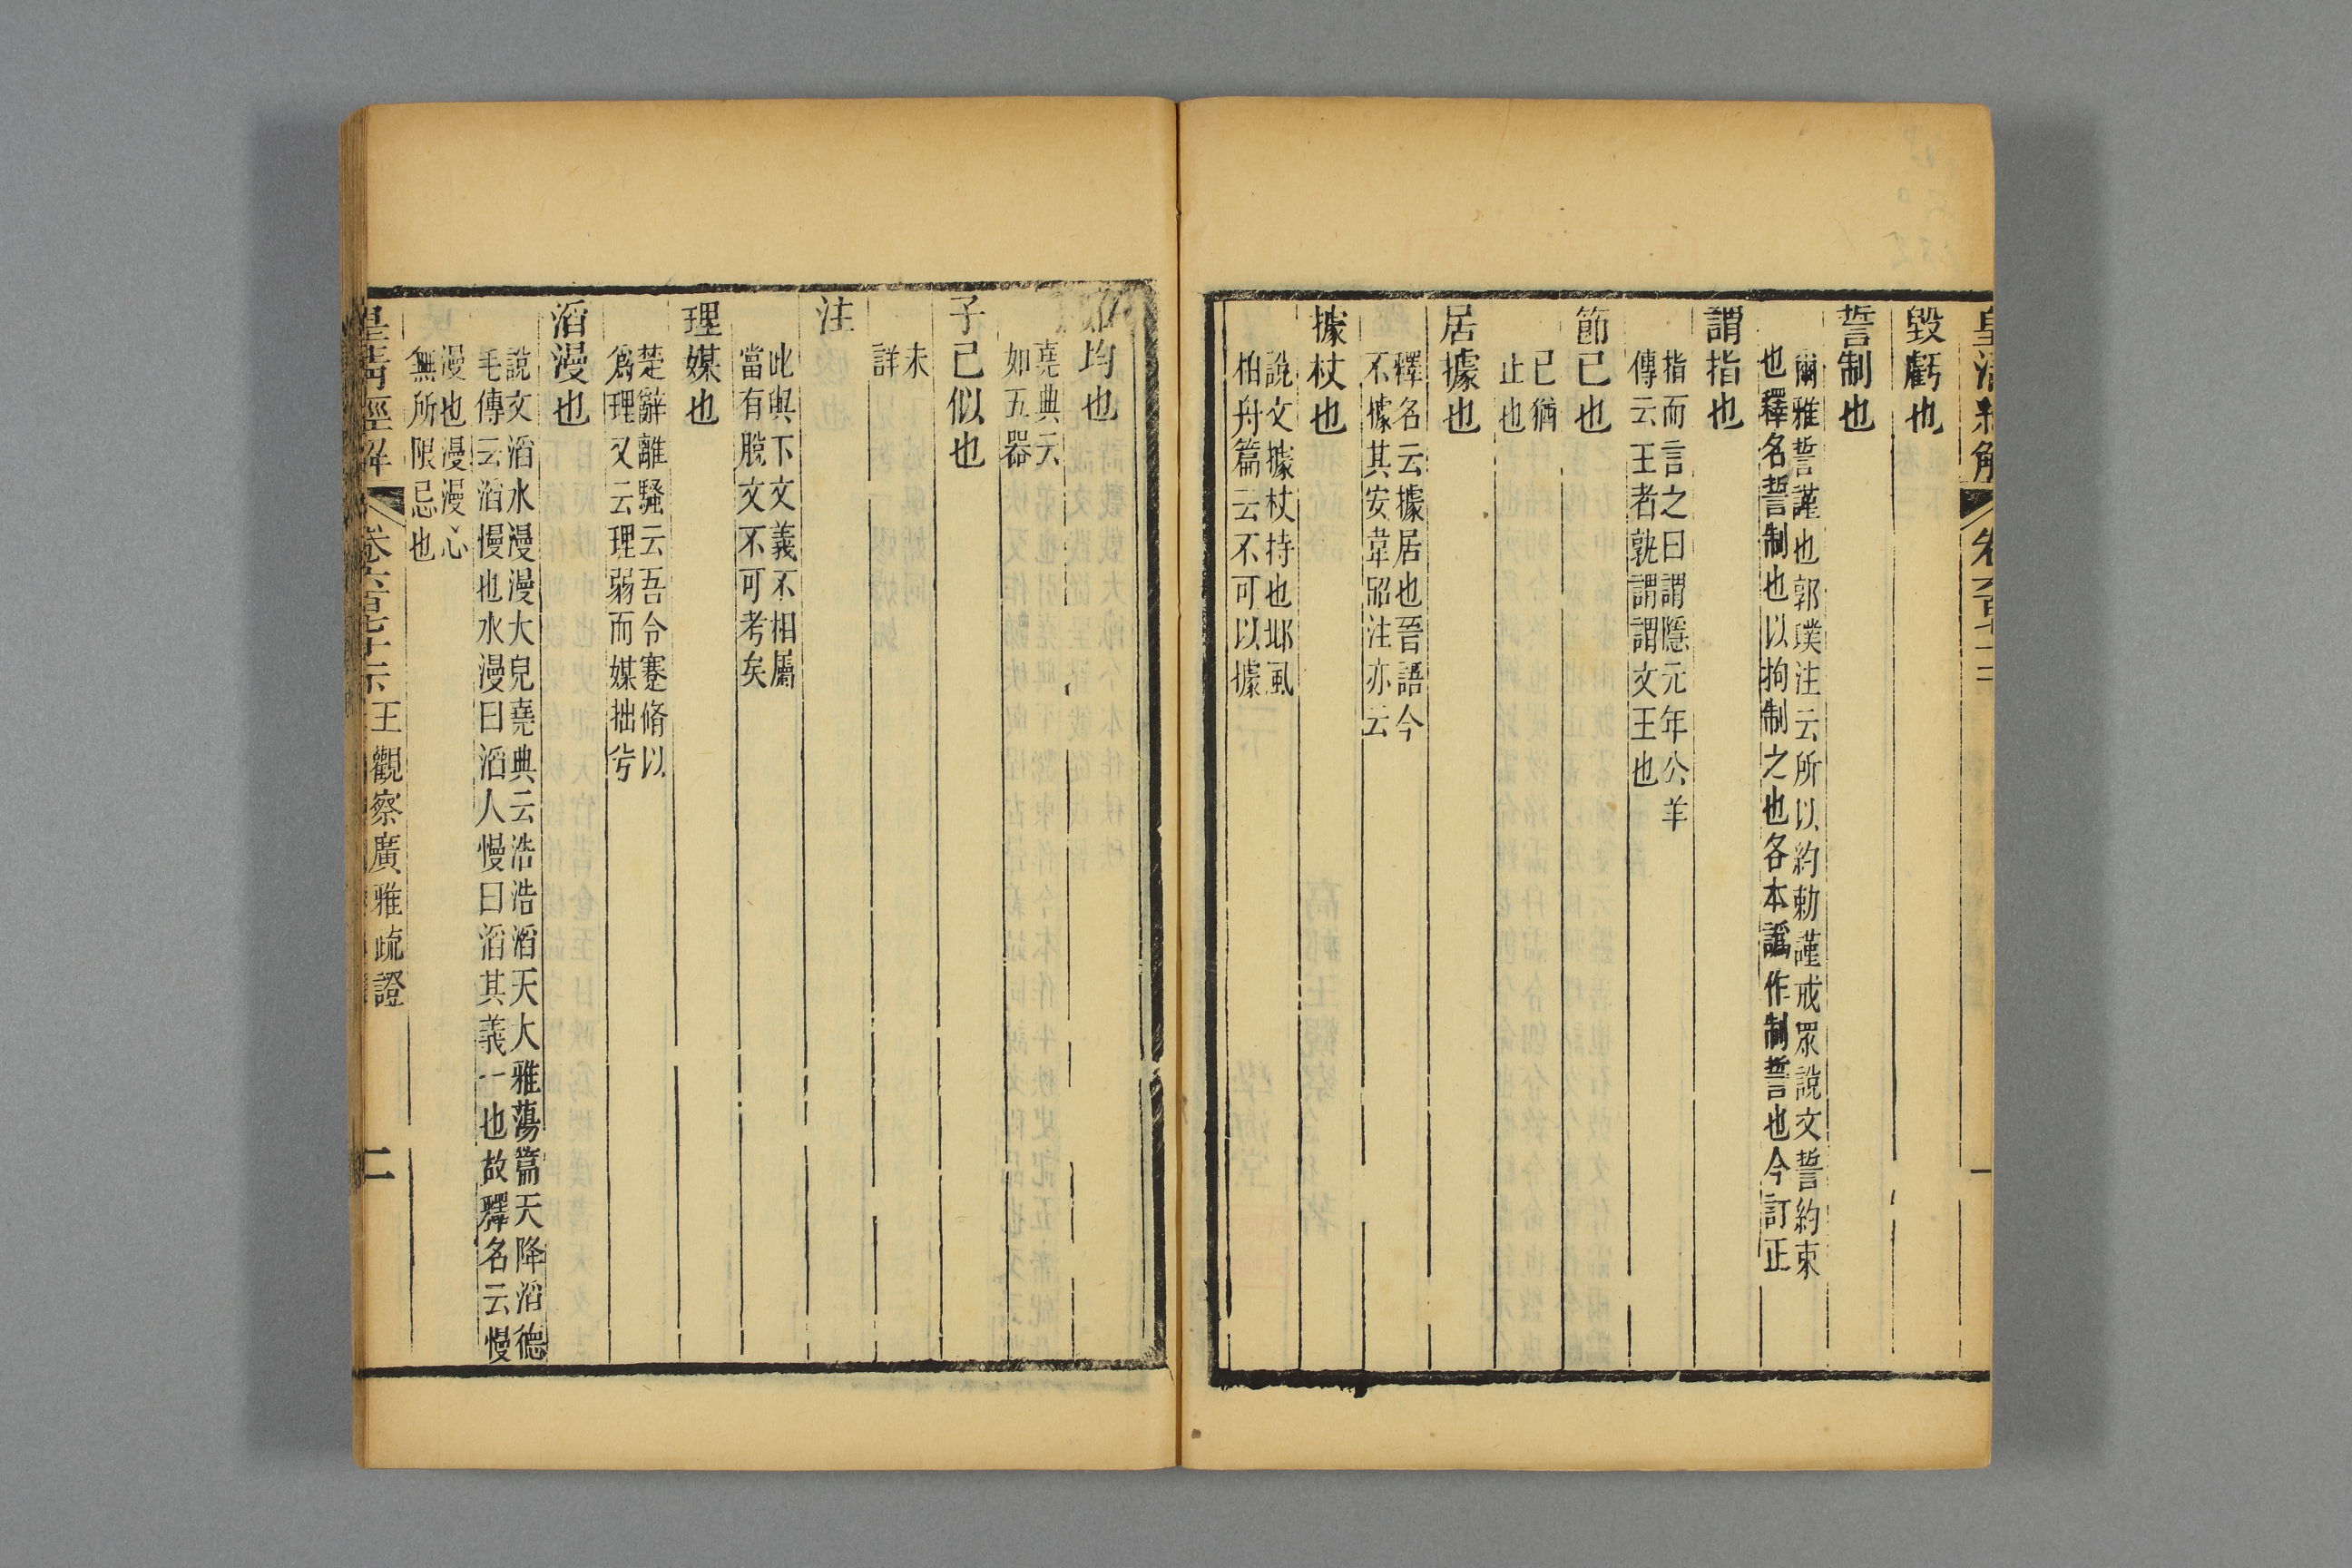 毀虧也
誓制也
爾雅誓謹也郭璞注云所以約勅謹戒眾說文誓約束
也釋名誓制也以拘制之也各本譌作制誓也今訂正
謂指也
指而言之曰謂隱元年公羊
傳云王者孰謂謂文王也
節已也
已猶
止也
居據也
釋名云據居也晉語今
不據其安韋昭注亦云
據杖也
說文據杖持也邶風
柏舟篇云不可以據
如均也
堯典云
如五器
子已似也
未
詳
注
此與下文義不相屬
當有脫文不可考矣
理媒也
楚辭離騷云吾令蹇脩以
爲理又云理弱而媒拙兮
滔漫也
說文滔水漫漫大皃堯典云浩浩滔天大雅蕩篇天降滔德
毛傳云滔慢也水漫曰滔人慢曰滔其義一也故釋名云慢
漫也漫漫心
無所限忌也
皇清經解 卷六百七十六 王觀察廣雅疏證 二